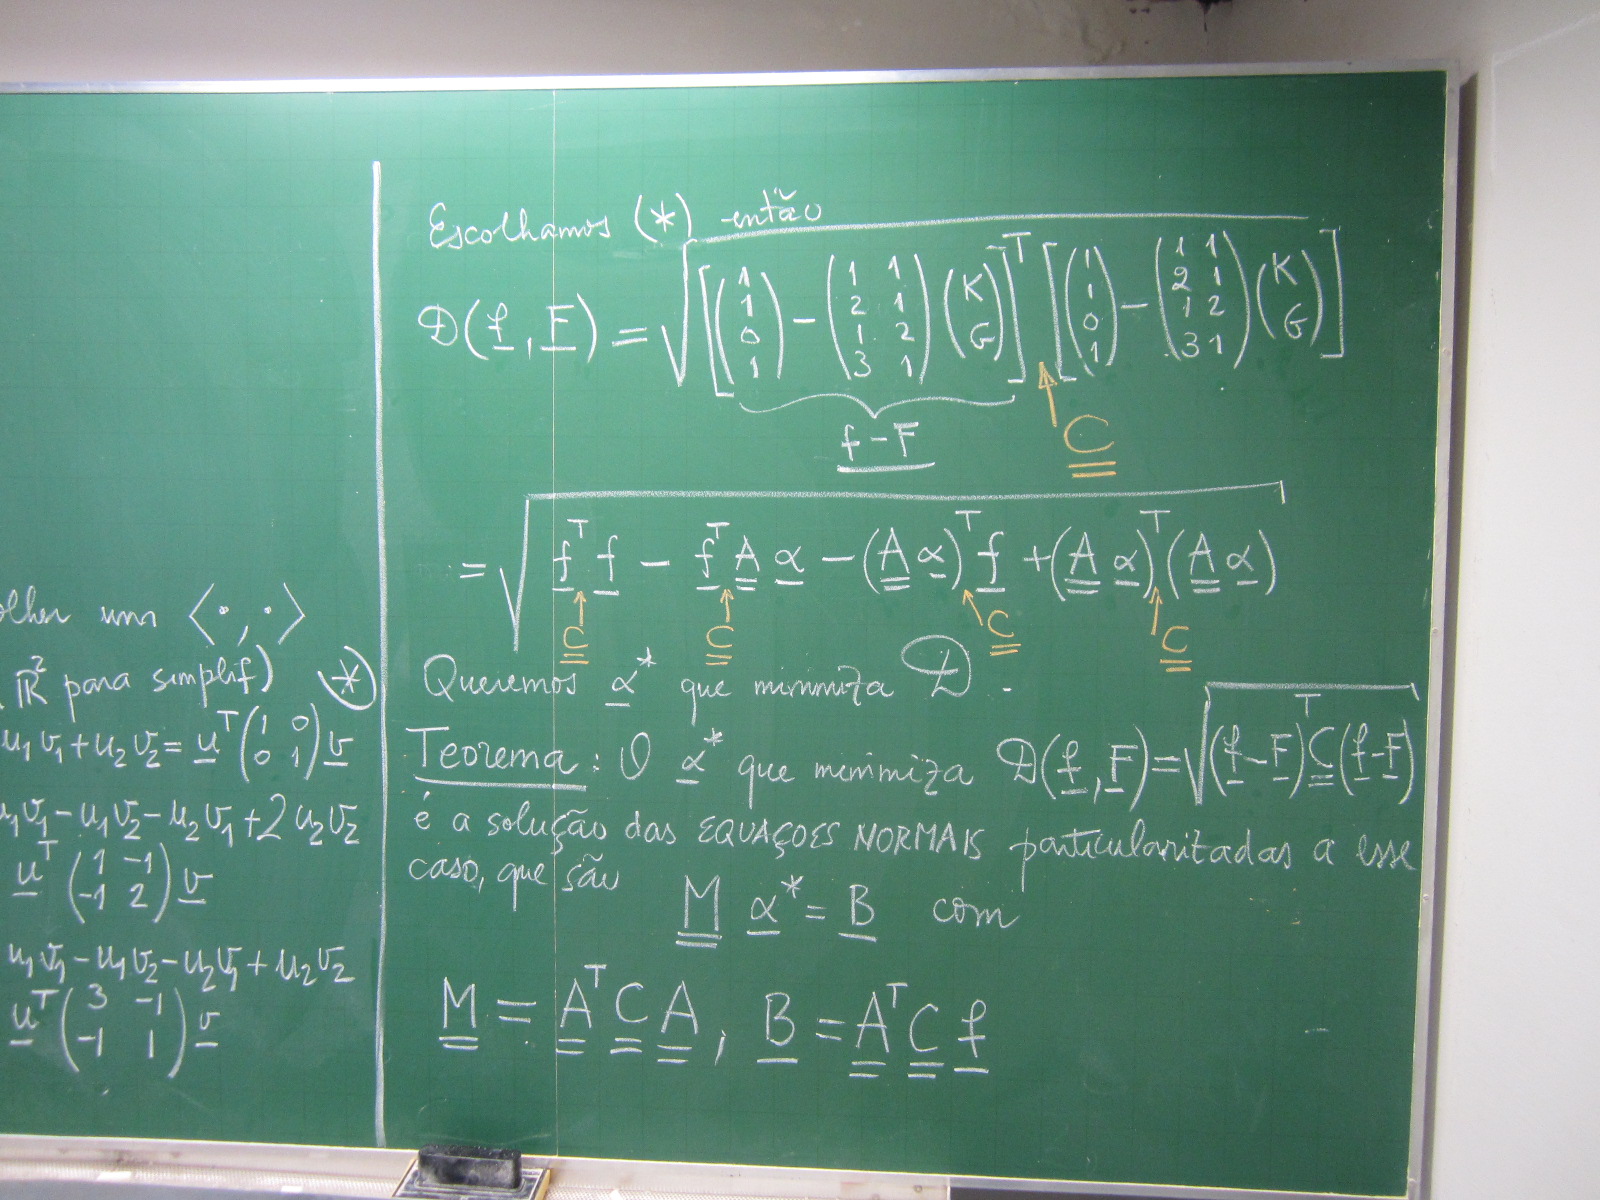 um ⟨·,·⟩
ℝ² para simplif) (*)
u₁v₁+u₂v₂ = u^T (1 0; 0 1) v
u₁v₁ - u₁v₂ - u₂v₁ + 2u₂v₂
u^T (1 -1; -1 2) v
u₁v₁ - u₁v₂ - u₂v₁ + u₂v₂
u^T (3 -1; -1 1) v
Escolhamos (*) então
D(f, F) = √([(1; 1; 0; 1) - (1 1; 2 1; 1 2; 3 1)(K; G)]^T [(1; 1; 0; 1) - (1 1; 2 1; 1 2; 3 1)(K; G)])
f - F
↑ C
= √(f^T f - f^T A α - (A α)^T f + (A α)^T (A α))
↑ C ↑ C ↑ C ↑ C
Queremos α* que minimiza D.
Teorema: O α* que minimiza D(f, F) = √((f-F)^T C (f-F))
é a solução das EQUAÇOES NORMAIS particularizadas a esse
caso, que são
M α* = B com
M = A^T C A, B = A^T C f